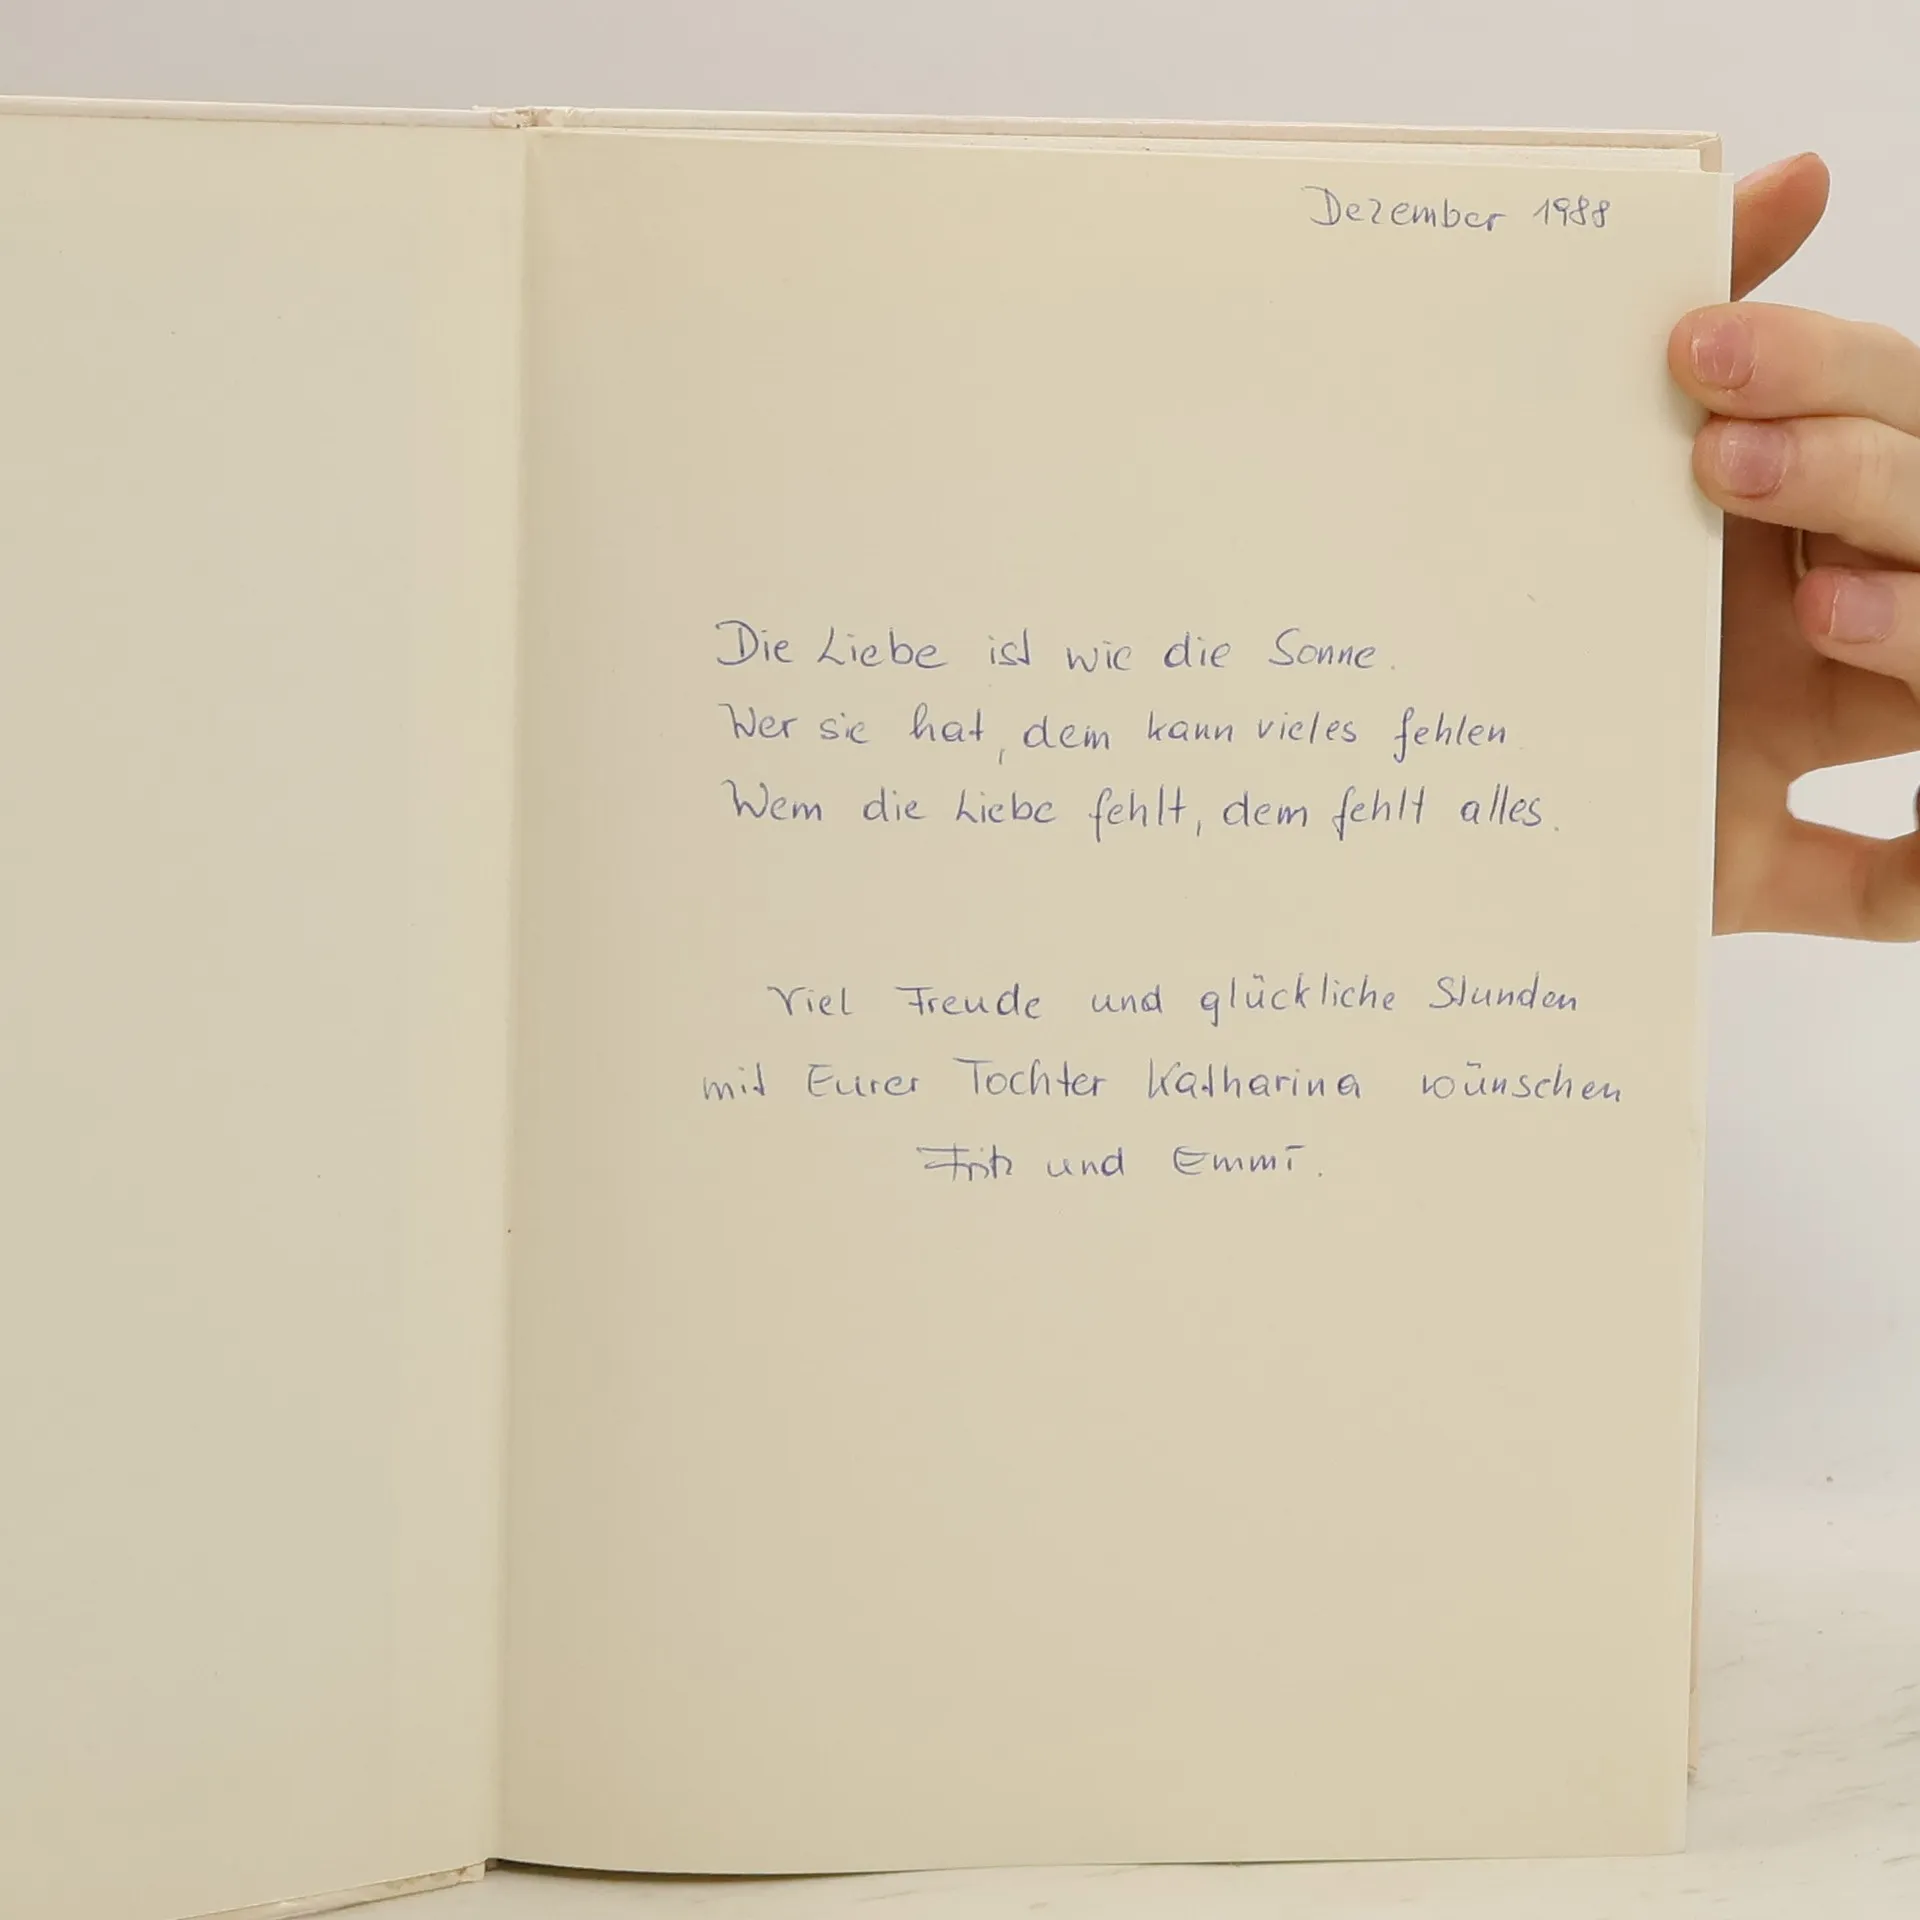 Dezember 1988
Die Liebe ist wie die Sonne.
Wer sie hat, dem kann vieles fehlen
Wem die Liebe fehlt, dem fehlt alles.
Viel Freude und glückliche Stunden
mit Eurer Tochter Katharina wünschen
Fritz und Emmi.